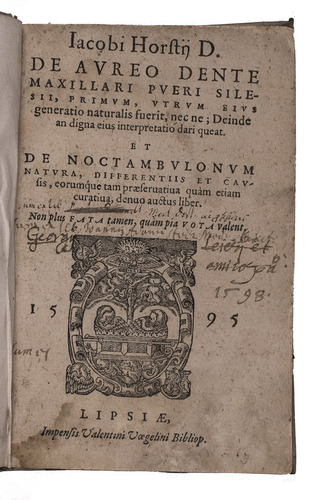 Iacobi Horstij D.
DE AVREO DENTE
MAXILLARI PVERI SILE-
SII, PRIMVM, VTRVM EIVS
generatio naturalis fuerit, nec ne; Deinde
an digna eius interpretatio dari queat.
ET
DE NOCTAMBVLONVM
NATVRA, DIFFERENTIIS ET CAV-
sis, eorumque tam præseruatiua quàm etiam
curatiua, denuo auctus liber.
Non plus FATA tamen, quàm pia VOTA valent.
Georg
et
amico
1598.
15 95
LIPSIÆ,
Impensis Valentini Vœgelini Bibliop.